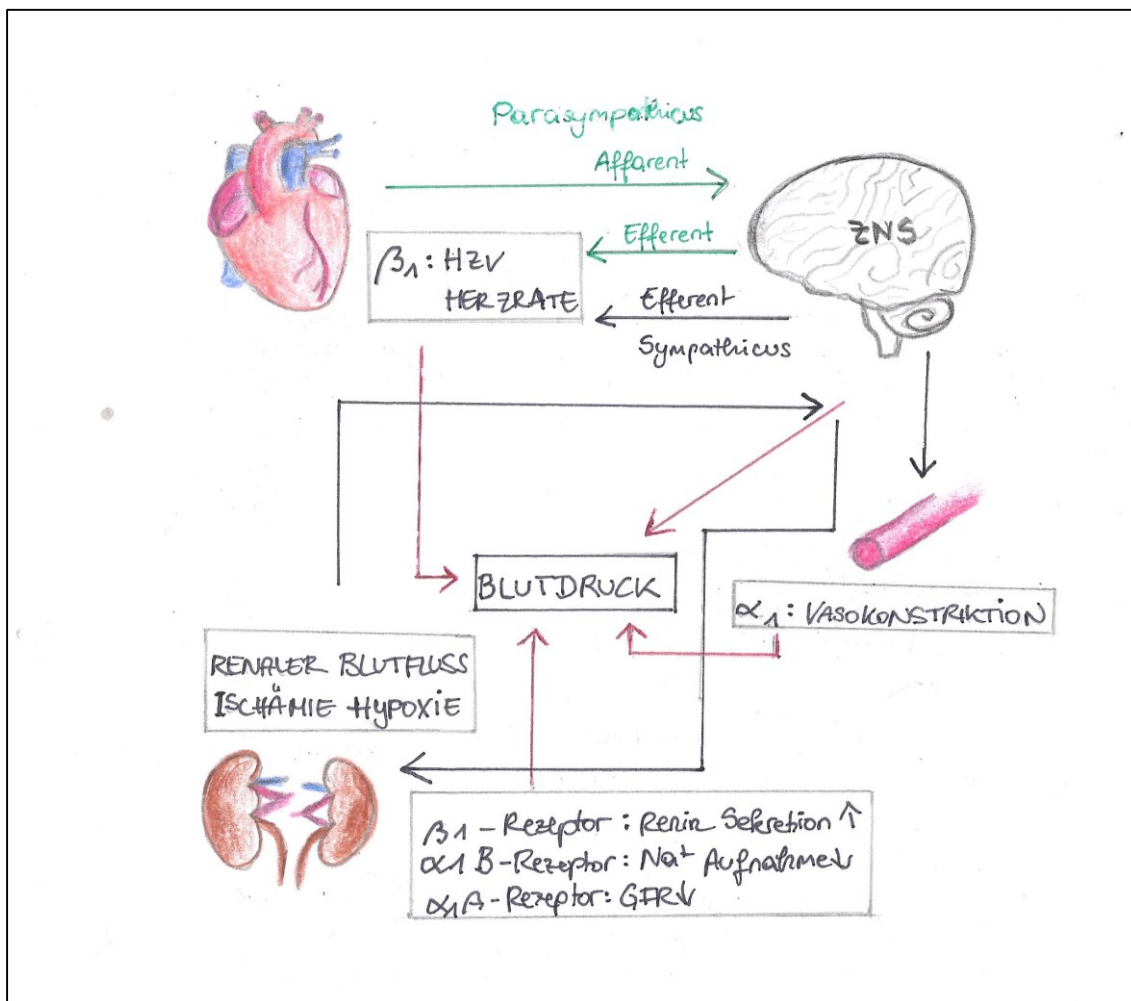 Parasympathicus
Affarent
Efferent
ZNS
β1: HZV
HERZRATE
Efferent
Sympathicus
BLUTDRUCK
α1: VASOKONSTRIKTION
RENALER BLUTFLUSS
ISCHÄMIE HYPOXIE
β1-Rezeptor: Renin Sekretion ↑
α1B-Rezeptor: Na+ Aufnahme↓
α1A-Rezeptor: GFR↓